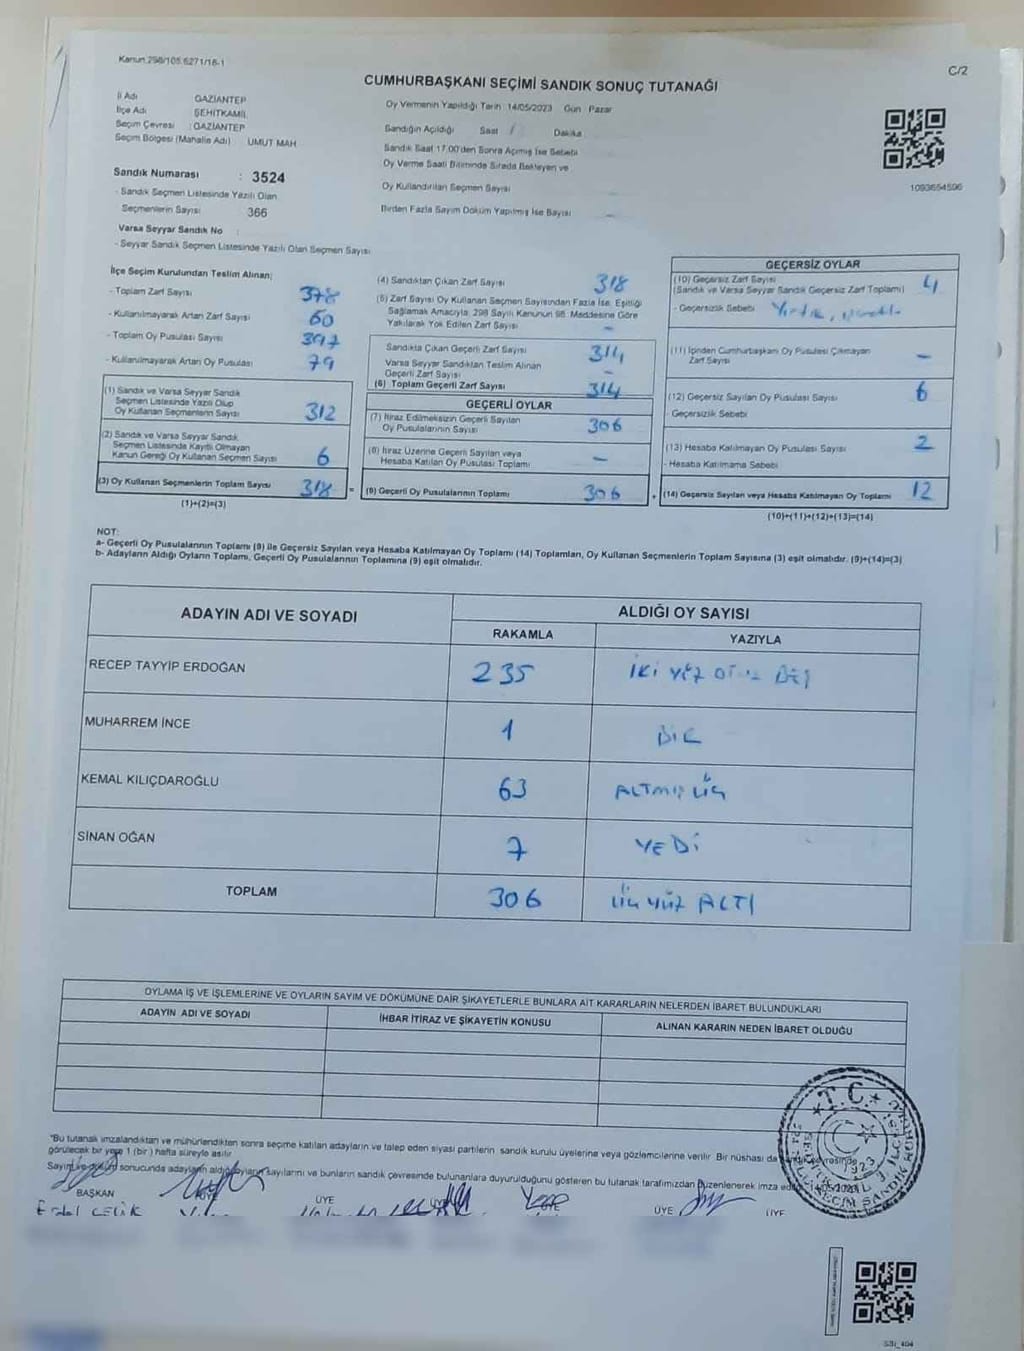 Kanun 298/105.6271/18-1
C/2
CUMHURBAŞKANI SEÇİMİ SANDIK SONUÇ TUTANAĞI
İl Adı GAZİANTEP
İlçe Adı ŞEHİTKAMİL
Seçim Çevresi : GAZİANTEP
Seçim Bölgesi (Mahalle Adı) UMUT MAH
Sandık Numarası : 3524
- Sandık Seçmen Listesinde Yazılı Olan
Seçmenlerin Sayısı 366
Varsa Seyyar Sandık No
- Seyyar Sandık Seçmen Listesinde Yazılı Olan Seçmen Sayısı
Oy Vermenin Yapıldığı Tarih 14/05/2023 Gün Pazar
Sandığın Açıldığı Saat Dakika
Sandık Saat 17.00'den Sonra Açılmış İse Sebebi
Oy Verme Saati Bitiminde Sırada Bekleyen ve
Oy Kullandırılan Seçmen Sayısı
Birden Fazla Sayım Döküm Yapılmış İse Sayısı
1093654596
İlçe Seçim Kurulundan Teslim Alınan;
- Toplam Zarf Sayısı 378
- Kullanılmayarak Artan Zarf Sayısı 60
- Toplam Oy Pusulası Sayısı 397
- Kullanılmayarak Artan Oy Pusulası 79
(1) Sandık ve Varsa Seyyar Sandık
Seçmen Listesinde Yazılı Olup
Oy Kullanan Seçmenlerin Sayısı 312
(2) Sandık ve Varsa Seyyar Sandık
Seçmen Listesinde Kayıtlı Olmayan
Kanun Gereği Oy Kullanan Seçmen Sayısı 6
(3) Oy Kullanan Seçmenlerin Toplam Sayısı 318 =
(1)+(2)=(3)
(4) Sandıktan Çıkan Zarf Sayısı 318
(5) Zarf Sayısı Oy Kullanan Seçmen Sayısından Fazla İse, Eşitliği
Sağlamak Amacıyla, 298 Sayılı Kanunun 98. Maddesine Göre
Yakılarak Yok Edilen Zarf Sayısı –
Sandıkta Çıkan Geçerli Zarf Sayısı 314
Varsa Seyyar Sandıktan Teslim Alınan
Geçerli Zarf Sayısı –
(6) Toplam Geçerli Zarf Sayısı 314
GEÇERLİ OYLAR
(7) İtiraz Edilmeksizin Geçerli Sayılan
Oy Pusulalarının Sayısı 306
(8) İtiraz Üzerine Geçerli Sayılan veya
Hesaba Katılan Oy Pusulası Toplamı –
(9) Geçerli Oy Pusulalarının Toplamı 306 +
GEÇERSİZ OYLAR
(10) Geçersiz Zarf Sayısı 4
(Sandık ve Varsa Seyyar Sandık Geçersiz Zarf Toplamı)
- Geçersizlik Sebebi Yırtık,
(11) İçinden Cumhurbaşkanı Oy Pusulası Çıkmayan
Zarf Sayısı –
(12) Geçersiz Sayılan Oy Pusulası Sayısı 6
- Geçersizlik Sebebi
(13) Hesaba Katılmayan Oy Pusulası Sayısı 2
- Hesaba Katılmama Sebebi
(14) Geçersiz Sayılan veya Hesaba Katılmayan Oy Toplamı 12
(10)+(11)+(12)+(13)=(14)
NOT:
a- Geçerli Oy Pusulalarının Toplamı (9) ile Geçersiz Sayılan veya Hesaba Katılmayan Oy Toplamı (14) Toplamları, Oy Kullanan Seçmenlerin Toplam Sayısına (3) eşit olmalıdır. (9)+(14)=(3)
b- Adayların Aldığı Oyların Toplamı, Geçerli Oy Pusulalarının Toplamına (9) eşit olmalıdır.
ADAYIN ADI VE SOYADI ALDIĞI OY SAYISI
RAKAMLA YAZIYLA
RECEP TAYYİP ERDOĞAN 235 İKİ YÜZ OTUZ BEŞ
MUHARREM İNCE 1 BİR
KEMAL KILIÇDAROĞLU 63 ALTMIŞ ÜÇ
SİNAN OĞAN 7 YEDİ
TOPLAM 306 ÜÇ YÜZ ALTI
OYLAMA İŞ VE İŞLEMLERİNE VE OYLARIN SAYIM VE DÖKÜMÜNE DAİR ŞİKAYETLERLE BUNLARA AİT KARARLARIN NELERDEN İBARET BULUNDUKLARI
ADAYIN ADI VE SOYADI İHBAR İTİRAZ VE ŞİKAYETİN KONUSU ALINAN KARARIN NEDEN İBARET OLDUĞU
"Bu tutanak imzalandıktan ve mühürlendikten sonra seçime katılan adayların ve talep eden siyasi partilerin sandık kurulu üyelerine veya gözlemcilerine verilir. Bir nüshası da
görülecek bir yere 1 (bir) hafta süreyle asılır.
Sayım ve döküm sonucunda adayların aldığı oyların sayılarını ve bunların sandık çevresinde bulunanlara duyurulduğunu gösteren bu tutanak tarafımızdan düzenlenerek imza
BAŞKAN ÜYE ÜYE ÜYE ÜYE ÜYE ÜYE
Erdal ÇELİK
T.C.
1923